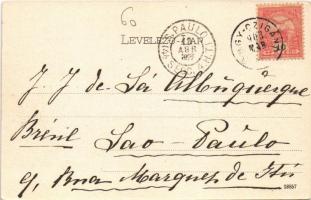 60
LEVELEZŐ-LAP
S. PAULO
ABR
NAGY-CZIGÁND
J. J. de Sá Albuquerque
Brésil Sao-Paulo
9, Rua Marquez de Itú